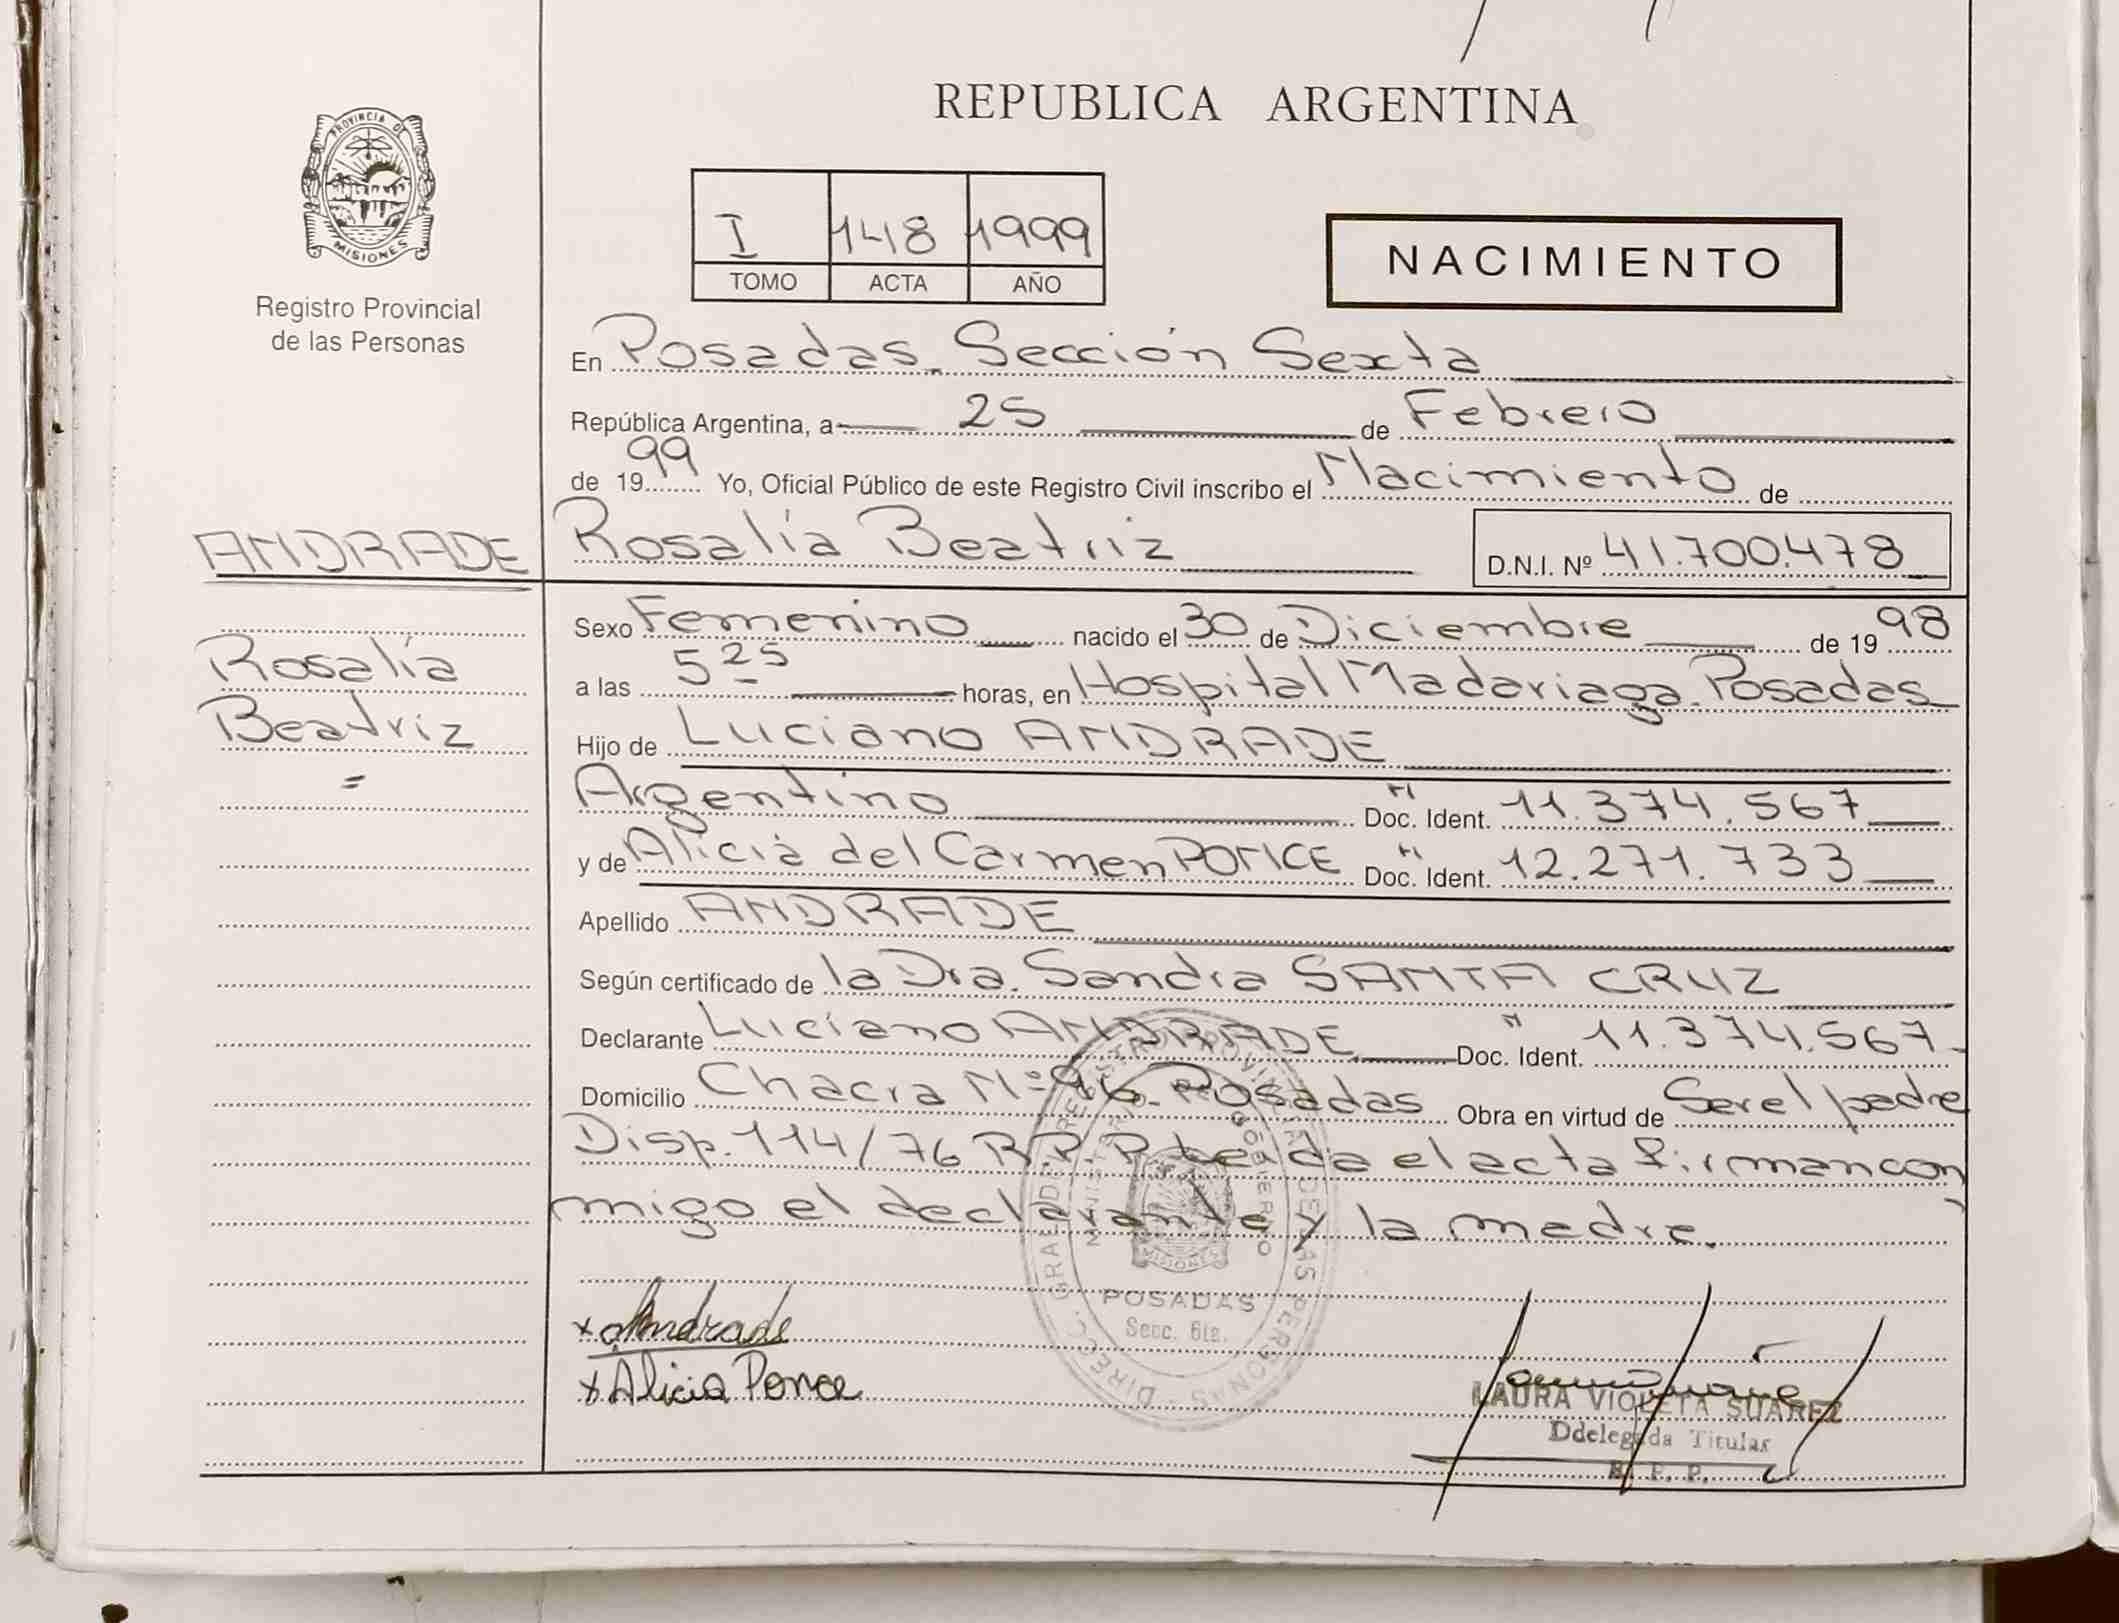 REPUBLICA ARGENTINA
PROVINCIA DE
MISIONES
Registro Provincial
de las Personas
I 148 1999
TOMO ACTA AÑO
NACIMIENTO
En Posadas. Sección Sexta
República Argentina, a 25 de Febrero
de 1999 Yo, Oficial Público de este Registro Civil inscribo el Nacimiento de
ANDRADE Rosalía Beatriz D.N.I. Nº 41.700.478
Sexo Femenino nacido el 30 de Diciembre de 1998
Rosalía
a las 5 25 horas, en Hospital Madariaga. Posadas
Beatriz
Hijo de Luciano ANDRADE
Argentino Doc. Ident. 11.374.567
y de Alicia del Carmen PONCE Doc. Ident. 12.271.733
Apellido ANDRADE
Según certificado de la Dra. Sandra SANTA CRUZ
Declarante Luciano ANDRADE Doc. Ident. 11.374.567
Domicilio Chacra Nº 96. Posadas Obra en virtud de Ser el padre
Disp. 114/76 R.P.P. Leída el acta firman con
migo el declarante y la madre.
DIRECC. GRAL. DE REGISTRO PROVINCIAL DE LAS PERSONAS
MINISTERIO DE GOBIERNO
MISIONES
POSADAS
Secc. 6ta.
x Andrade
x Alicia Ponce
LAURA VIOLETA SUAREZ
Ddelegada Titular
R. P. P.